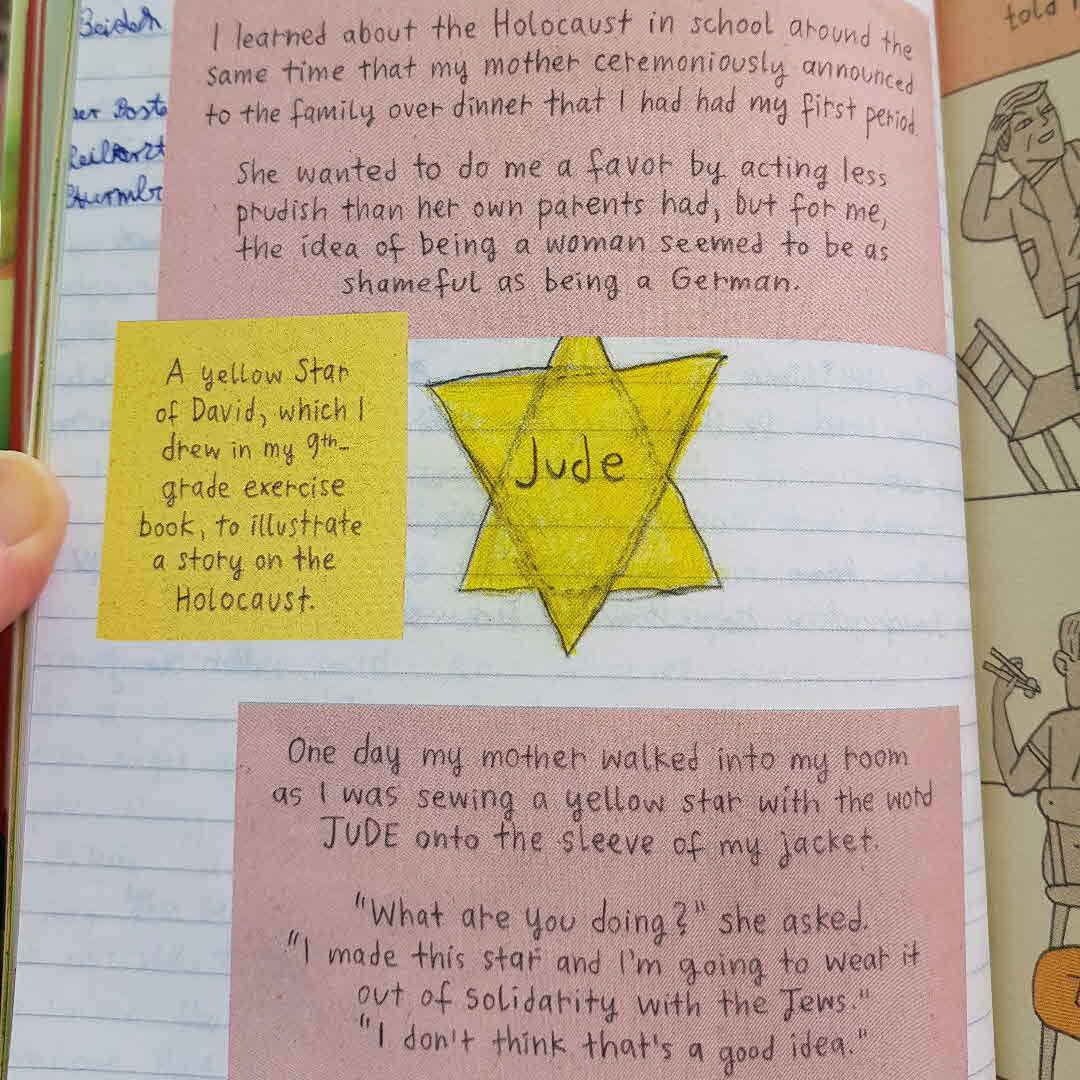 Beiden
I learned about the Holocaust in school around the
same time that my mother ceremoniously announced
to the family over dinner that I had had my first period.
She wanted to do me a favor by acting less
prudish than her own parents had, but for me,
the idea of being a woman seemed to be as
shameful as being a German.
A yellow Star
of David, which I
drew in my 9th-
grade exercise
book, to illustrate
a story on the
Holocaust.
Jude
One day my mother walked into my room
as I was sewing a yellow star with the word
JUDE onto the sleeve of my jacket.
"What are you doing?" she asked.
"I made this star and I'm going to wear it
out of solidarity with the Jews."
"I don't think that's a good idea."
told